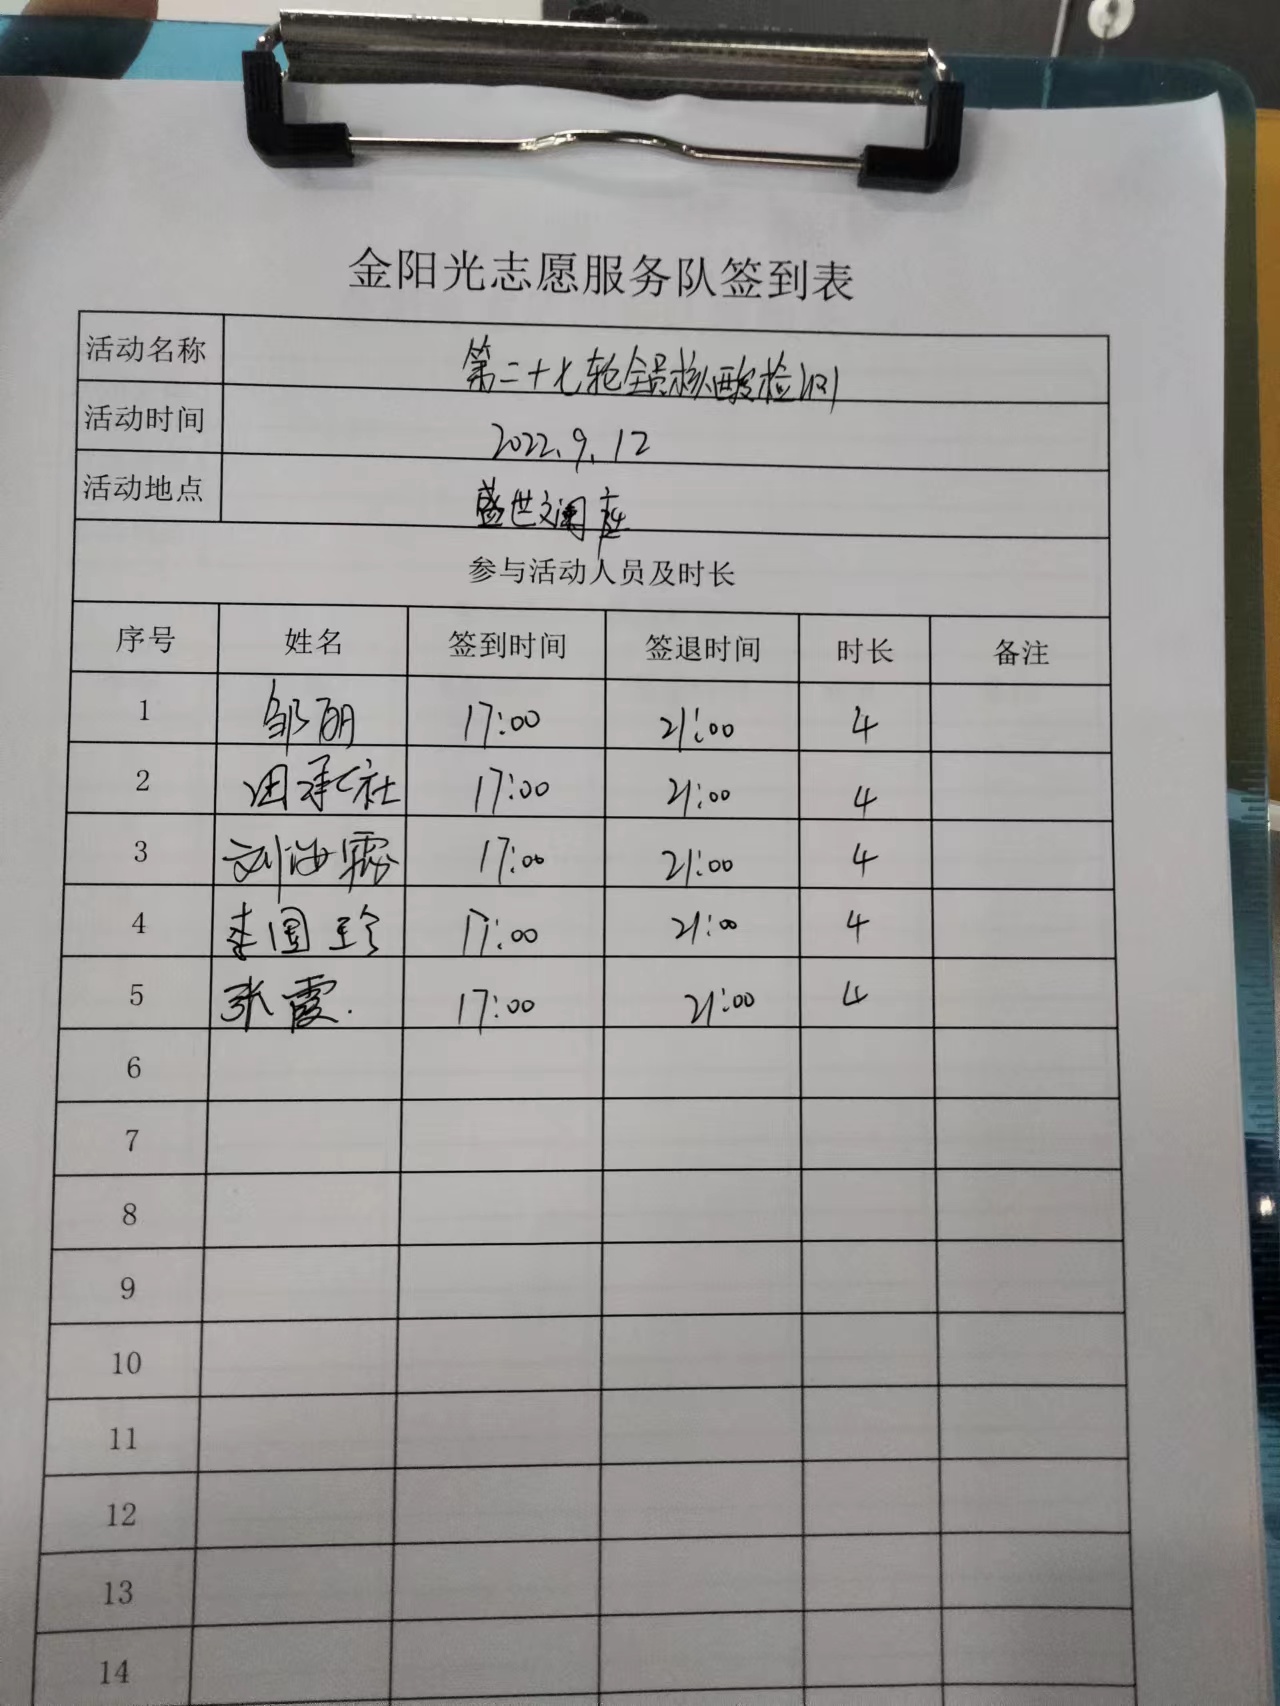 金阳光志愿服务队签到表
活动名称 第二十七轮全员核酸检测
活动时间 2022.9.12
活动地点 盛世文阑庭
参与活动人员及时长
序号 姓名 签到时间 签退时间 时长 备注
1 邹丽 17:00 21:00 4
2 田承社 17:00 21:00 4
3 刘海霞 17:00 21:00 4
4 李国珍 17:00 21:00 4
5 张霞. 17:00 21:00 4
6
7
8
9
10
11
12
13
14